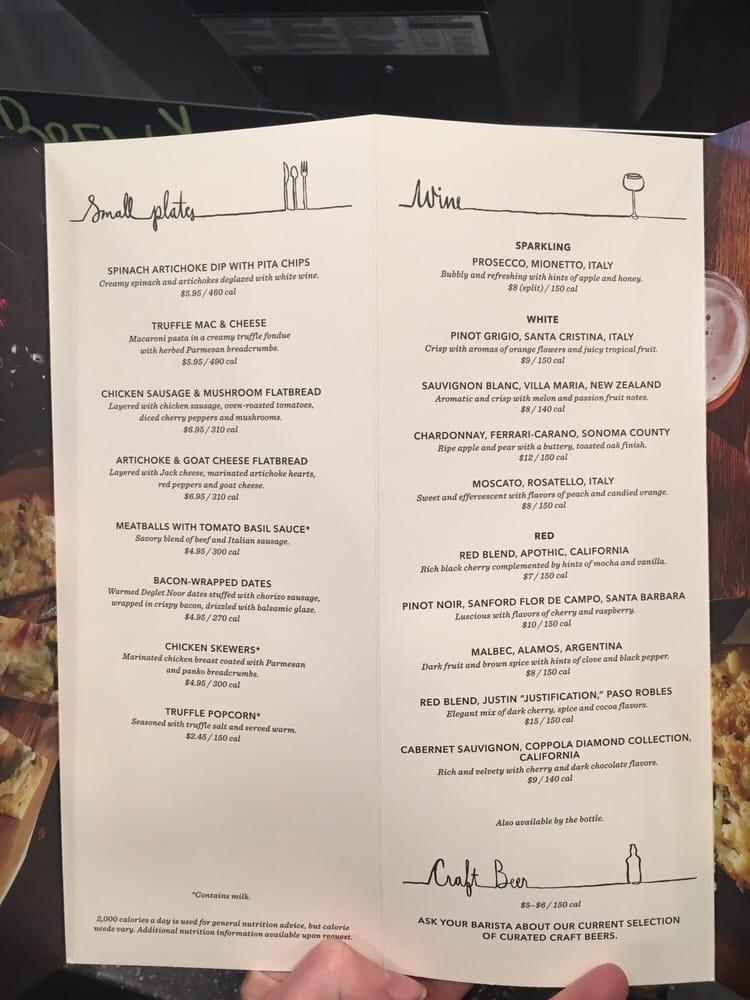 Small plates
SPINACH ARTICHOKE DIP WITH PITA CHIPS
Creamy spinach and artichokes deglazed with white wine.
$5.95 / 460 cal
TRUFFLE MAC & CHEESE
Macaroni pasta in a creamy truffle fondue
with herbed Parmesan breadcrumbs.
$5.95 / 490 cal
CHICKEN SAUSAGE & MUSHROOM FLATBREAD
Layered with chicken sausage, oven-roasted tomatoes,
diced cherry peppers and mushrooms.
$6.95 / 310 cal
ARTICHOKE & GOAT CHEESE FLATBREAD
Layered with Jack cheese, marinated artichoke hearts,
red peppers and goat cheese.
$6.95 / 310 cal
MEATBALLS WITH TOMATO BASIL SAUCE*
Savory blend of beef and Italian sausage.
$4.95 / 300 cal
BACON-WRAPPED DATES
Warmed Deglet Noor dates stuffed with chorizo sausage,
wrapped in crispy bacon, drizzled with balsamic glaze.
$4.95 / 270 cal
CHICKEN SKEWERS*
Marinated chicken breast coated with Parmesan
and panko breadcrumbs.
$4.95 / 300 cal
TRUFFLE POPCORN*
Seasoned with truffle salt and served warm.
$2.45 / 150 cal
*Contains milk.
2,000 calories a day is used for general nutrition advice, but calorie
needs vary. Additional nutrition information available upon request.
Wine
SPARKLING
PROSECCO, MIONETTO, ITALY
Bubbly and refreshing with hints of apple and honey.
$8 (split) / 150 cal
WHITE
PINOT GRIGIO, SANTA CRISTINA, ITALY
Crisp with aromas of orange flowers and juicy tropical fruit.
$9 / 150 cal
SAUVIGNON BLANC, VILLA MARIA, NEW ZEALAND
Aromatic and crisp with melon and passion fruit notes.
$8 / 140 cal
CHARDONNAY, FERRARI-CARANO, SONOMA COUNTY
Ripe apple and pear with a buttery, toasted oak finish.
$12 / 150 cal
MOSCATO, ROSATELLO, ITALY
Sweet and effervescent with flavors of peach and candied orange.
$8 / 150 cal
RED
RED BLEND, APOTHIC, CALIFORNIA
Rich black cherry complemented by hints of mocha and vanilla.
$7 / 150 cal
PINOT NOIR, SANFORD FLOR DE CAMPO, SANTA BARBARA
Luscious with flavors of cherry and raspberry.
$10 / 150 cal
MALBEC, ALAMOS, ARGENTINA
Dark fruit and brown spice with hints of clove and black pepper.
$8 / 150 cal
RED BLEND, JUSTIN "JUSTIFICATION," PASO ROBLES
Elegant mix of dark cherry, spice and cocoa flavors.
$15 / 150 cal
CABERNET SAUVIGNON, COPPOLA DIAMOND COLLECTION,
CALIFORNIA
Rich and velvety with cherry and dark chocolate flavors.
$9 / 140 cal
Also available by the bottle.
Craft Beer
$5–$6 / 150 cal
ASK YOUR BARISTA ABOUT OUR CURRENT SELECTION
OF CURATED CRAFT BEERS.